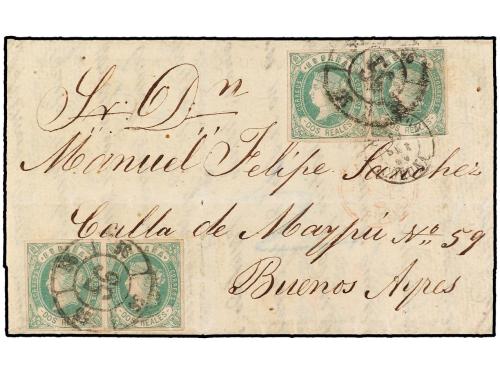 ESPAÑA
CORREOS
DOS REALES
CORREOS
DOS REALES
Sr. Dn
Manuel Felipe Sanchez
Calla de Maypú No. 59
Buenos Ayres
ESPAÑA ESPAÑA
CORREOS CORREOS
DOS REALES DOS REALES